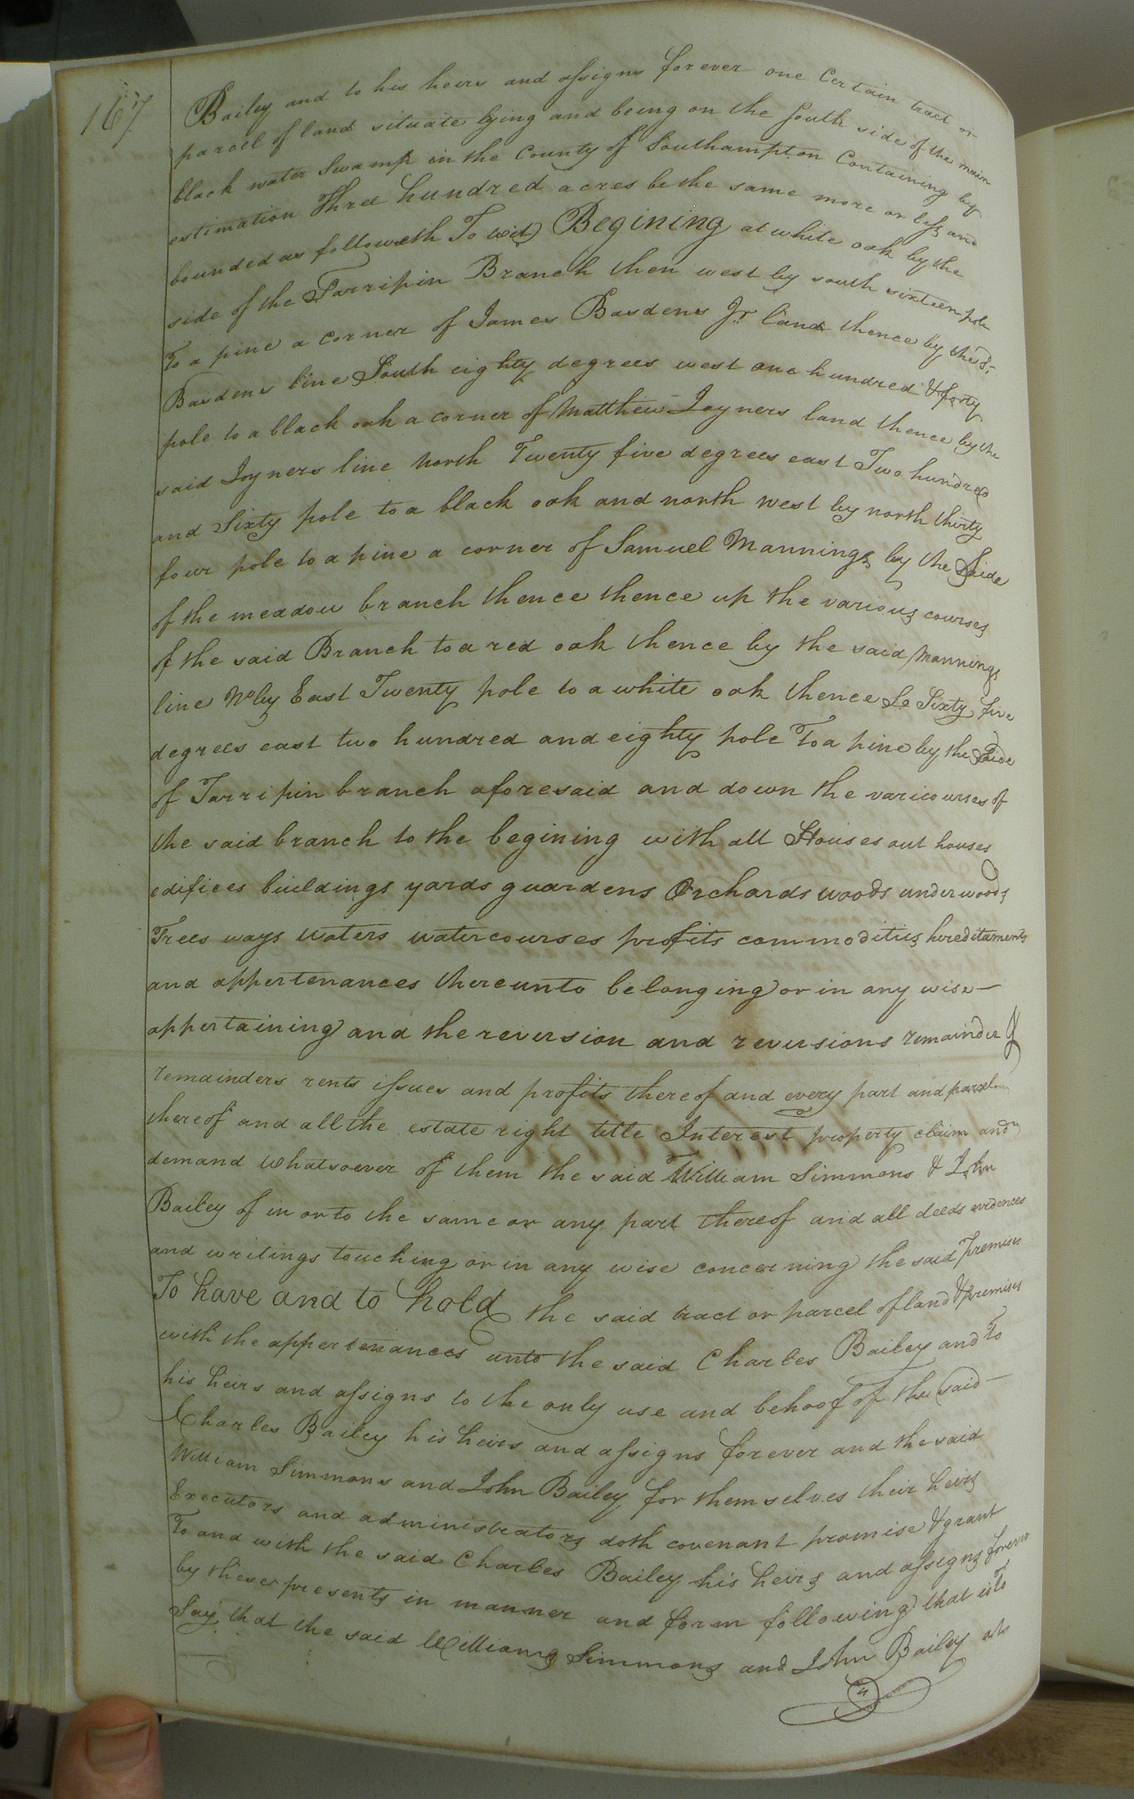 167
Bailey and to his heirs and assigns forever one Certain tract or
parcel of land situate lying and being on the South side of the main
black water Swamp in the County of Southampton Containing by
estimation Three hundred acres be the same more or less and
bounded as followeth To wit Begining at white oak by the
side of the Tarripin Branch then west by south sixteen pole
To a pine a corner of James Basdens Jr land thence by the sd
Basdens line South eighty degrees west one hundred & forty
pole to a black oak a corner of Matthew Joyners land thence by the
said Joyners line North Twenty five degrees east Two hundred
and Sixty pole to a black oak and north west by north thirty
four pole to a pine a corner of Samuel Mannings by the Side
of the meadow branch thence thence up the various courses
of the said Branch to a red oak thence by the said Mannings
line No by East Twenty pole to a white oak thence So Sixty five
degrees east two hundred and eighty pole To a pine by the Side
of Tarripin branch aforesaid and down the varicourses of
the said branch to the begining with all Houses out houses
edifices buildings yards guardens Orchards woods underwoods
Trees ways waters watercourses profits commodities hereditaments
and appertenances thereunto belonging or in any wise
appertaining and the reversion and reversions remainder &
remainders rents issues and profits thereof and every part and parcel
thereof and all the estate right title Interest property claim and
demand whatsoever of them the said William Simmons & John
Bailey of in or to the same or any part thereof and all deeds evidences
and writings touching or in any wise concerning the said premises
To have and to hold the said tract or parcel of land & premises
with the appertenances unto the said Charles Bailey and To
his heirs and assigns to the only use and behoof of the said
Charles Bailey his heirs and assigns forever and the said
William Simmons and John Bailey for themselves their heirs
Executors and administrators doth covenant promise & grant
To and with the said Charles Bailey his heirs and assigns forever
by these presents in manner and form following that is to
Say, that the said Williams Simmons and John Bailey at